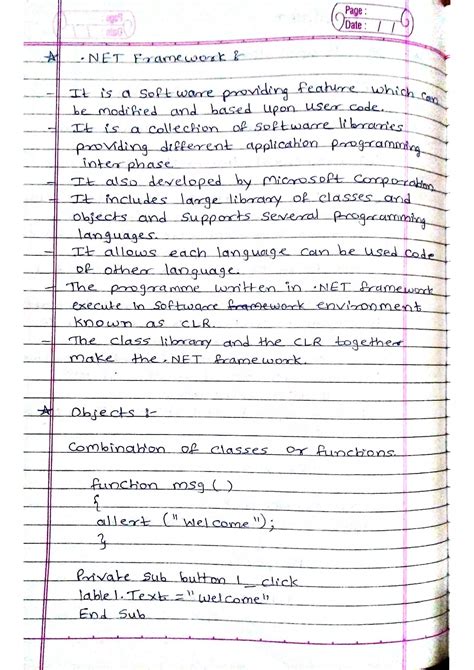 Page :
Date : / /
★ .NET Framework :-
- It is a software providing feature which can
be modified and based upon user code.
- It is a collection of software libraries
providing different application programming
interphase
- It also developed by microsoft Comporation
- It includes large library of classes and
objects and supports several programming
languages.
- It allows each language can be used code
of other language.
- The programme written in .NET framework
execute in software framework environment
known as CLR.
- The class library and the CLR together
make the .NET framework.
★ Objects :-
Combination of classes or functions.
function msg ( )
{
allert ("Welcome");
}
Private sub button 1_ click
lable1.Text = "Welcome"
End Sub